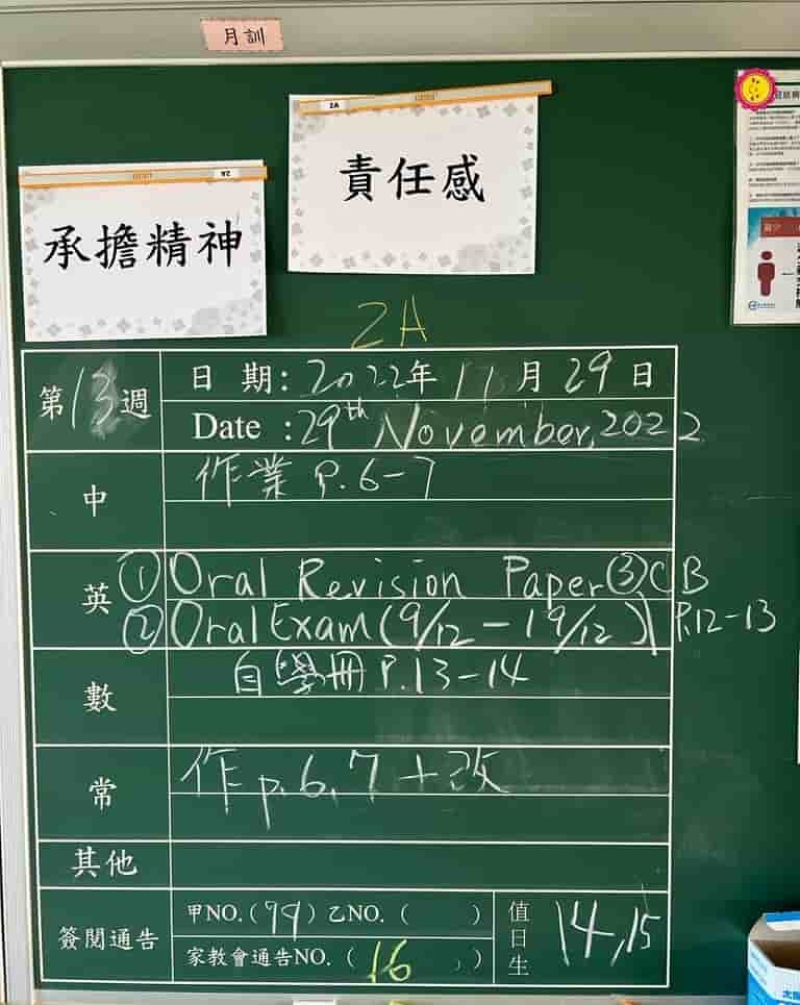 月訓
2A
責任感
承擔精神
2A
第13週
日 期：2022年 11月 29日
Date ：29th November, 2022
中
作業 P.6-7
英
① Oral Revision Paper ③ CB
② Oral Exam (9/12 - 19/12) P.12-13
數
自學冊 P.13-14
常
作 p.6, 7 + 改
其他
簽閱通告
甲NO.( 99 ) 乙NO.( )
家教會通告NO.( 16 )
值日生
14, 15